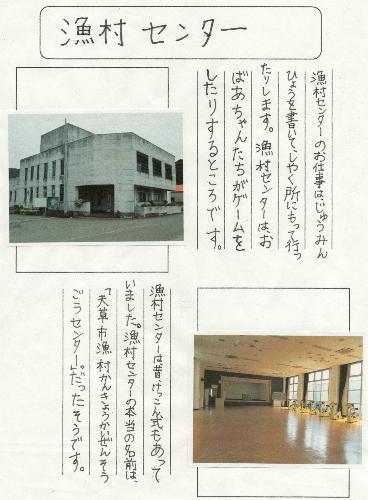 漁村センター
漁村センターのお仕事は、じゅうみん
ひょうを書いて、しやく所にもって行っ
たりします。漁村センターは、お
ばあちゃんたちがゲームを
したりするところです。
漁村センターは昔、けっこん式もあって
いました。漁村センターの本当の名前は、
「天草市漁村かんきょうかいぜんそう
ごうセンター」だったそうです。